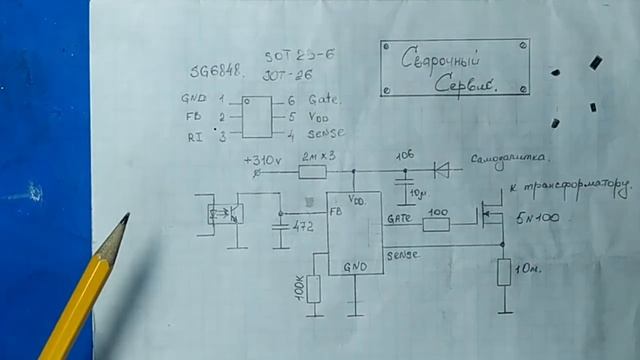 SOT 23-6
SG6848. SOT-26
Сварочный
Сервис.
GND 1
6 Gate.
FB 2
5 VDD
RI 3
4 SENSE
+310v
2м×3
106
Самопапитка.
10м
К трансформатору.
VDD.
FB
GATE
100
5N100
472
SENSE
100К
GND
10м.